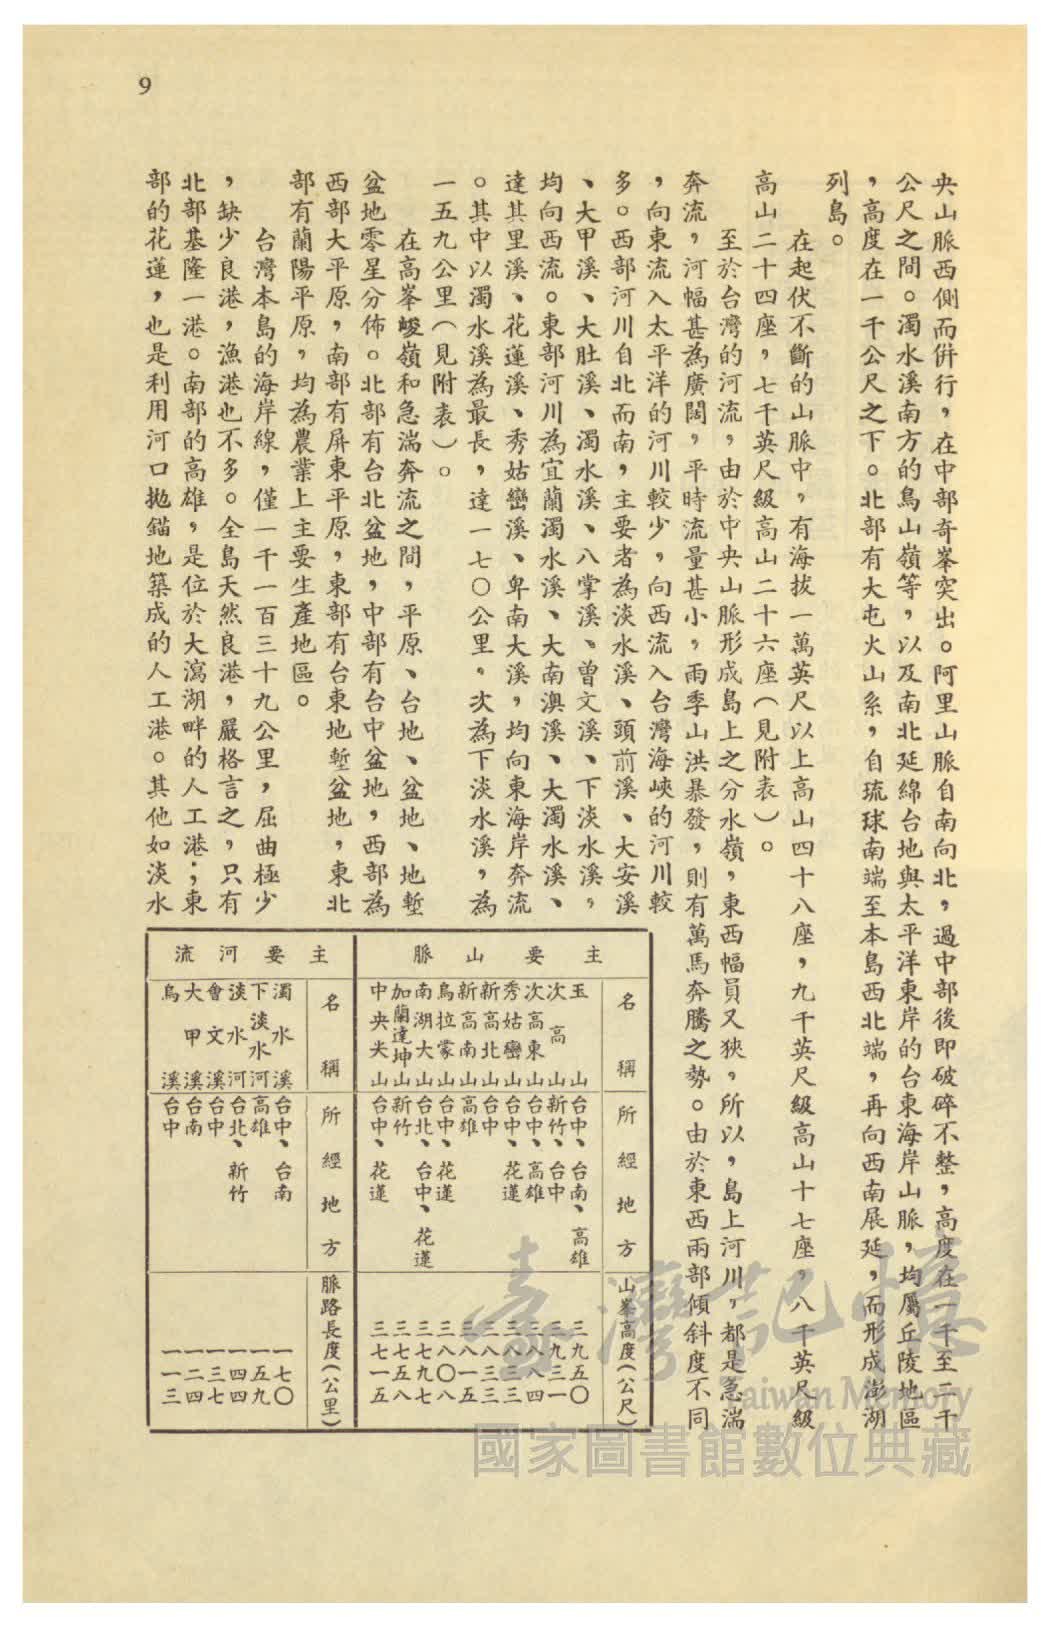 9
央山脈西側而併行，在中部奇峯突出。阿里山脈自南向北，過中部後即破碎不整，高度在一千至二千
公尺之間。濁水溪南方的烏山嶺等，以及南北延綿台地與太平洋東岸的台東海岸山脈，均屬丘陵地區
，高度在一千公尺之下。北部有大屯火山系，自琉球南端至本島西北端，再向西南展延，而形成澎湖
列島。
在起伏不斷的山脈中，有海拔一萬英尺以上高山四十八座，九千英尺級高山十七座，八千英尺級
高山二十四座，七千英尺級高山二十六座（見附表）。
至於台灣的河流，由於中央山脈形成島上之分水嶺，東西幅員又狹，所以，島上河川，都是急湍
奔流，河幅甚為廣闊，平時流量甚小，雨季山洪暴發，則有萬馬奔騰之勢。由於東西兩部傾斜度不同
，向東流入太平洋的河川較少，向西流入台灣海峽的河川較
多。西部河川自北而南，主要者為淡水溪、頭前溪、大安溪
、大甲溪、大肚溪、濁水溪、八掌溪、曾文溪、下淡水溪，
均向西流。東部河川為宜蘭濁水溪、大南澳溪、大濁水溪、
達其里溪、花蓮溪、秀姑巒溪、卑南大溪，均向東海岸奔流
。其中以濁水溪為最長，達一七〇公里。次為下淡水溪，為
一五九公里（見附表）。
在高峯峻嶺和急湍奔流之間，平原、台地、盆地、地塹
盆地零星分佈。北部有台北盆地，中部有台中盆地，西部為
西部大平原，南部有屏東平原，東部有台東地塹盆地，東北
部有蘭陽平原，均為農業上主要生產地區。
台灣本島的海岸線，僅一千一百三十九公里，屈曲極少
，缺少良港，漁港也不多。全島天然良港，嚴格言之，只有
北部基隆一港。南部的高雄，是位於大瀉湖畔的人工港；東
部的花蓮，也是利用河口拋錨地築成的人工港。其他如淡水
主要山脈
名稱 所經地方 山峯高度（公尺）
玉山 台中、台南、高雄 三九五〇
次高山 新竹、台中 三九三一
次高東山 台中、高雄 三八八四
秀姑巒山 台中、花蓮 三八三三
新高北山 台中 三八三三
新高南山 高雄 三八一五
烏拉蒙山 台中、花蓮 三八〇八
南湖大山 台北、台中、花蓮 三七九七
加蘭達坤山 新竹 三七五八
中央尖山 台中、花蓮 三七一五
主要河流
名稱 所經地方 脈路長度（公里）
濁水溪 台中、台南 一七〇
下淡水河 高雄 一五九
淡水河 台北、新竹 一四四
會文溪 台中 一三七
大甲溪 台南 一二四
烏溪 台中 一一三
臺灣記憶
Taiwan Memory
國家圖書館數位典藏